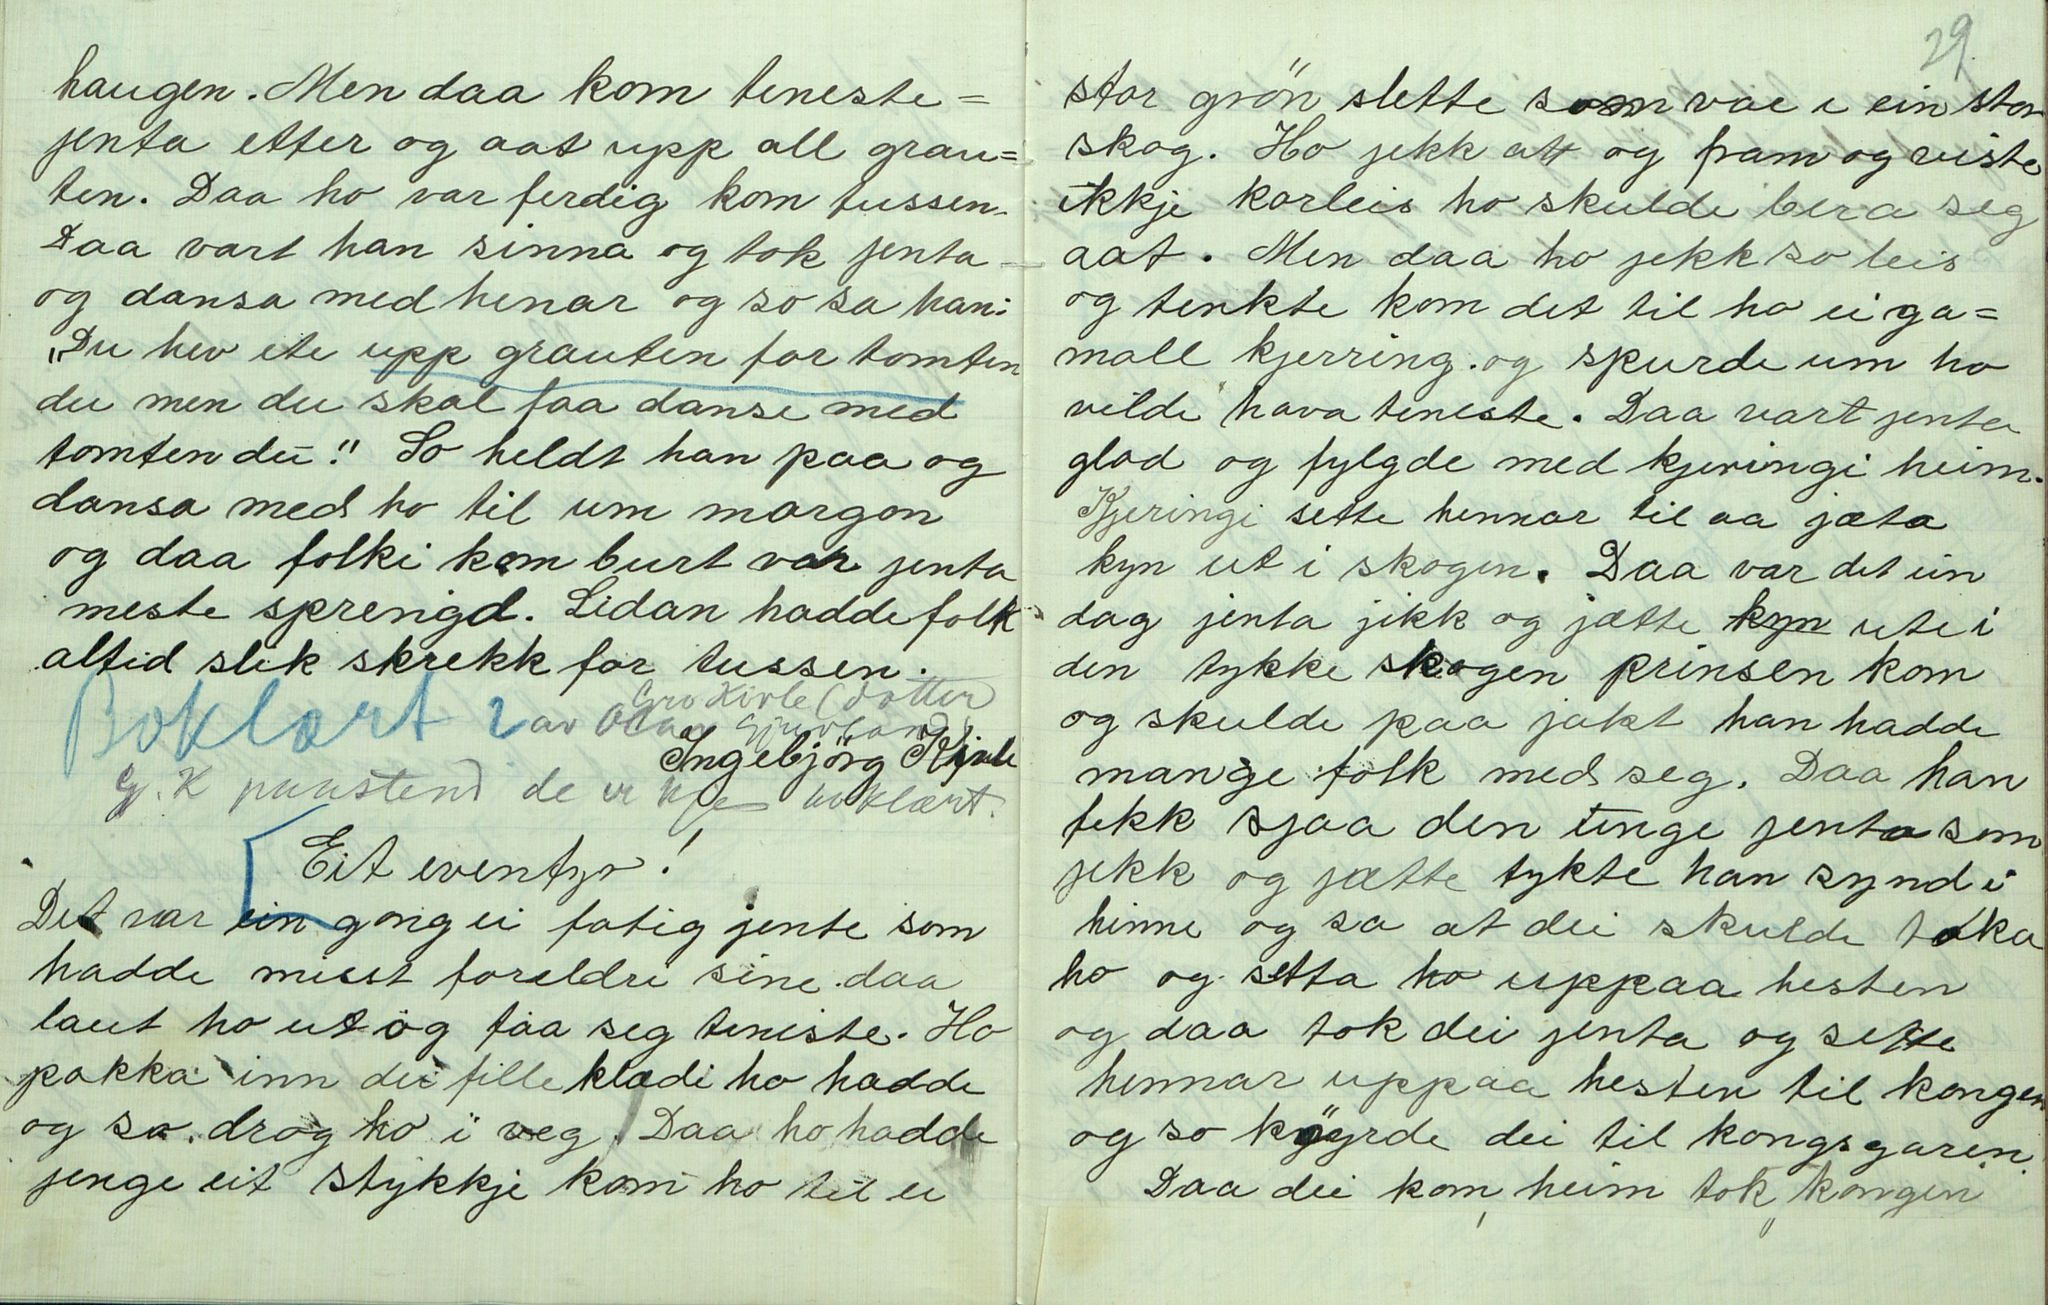 haugen. Men daa kom teneste=
jenta etter og aat upp all grau=
ten. Daa ho var ferdig kom tussen.
Daa vart han sinna og tok jenta
og dansa med henar og so sa han:
"Du hev ete upp grauten for tomten
du men du skal faa danse med
tomten du." So heldt han paa og
dansa med ho til um margon
og daa folki kom burt var jenta
meste sprengd. Sidan hadde folk
altid slik skrekk for tussen.
Boklært 2 av Gro Kivle (dotter
Olav Gjuvland)
Ingebjörg Kivle
G. K paastend de er kje boklært.
Eit eventyr!
Det var ein gong ei fatig jente som
hadde misst foreldre sine daa
laut ho ut og faa seg teneste. Ho
pakka inn dei fille klædi ho hadde
og so drog ho i veg. Daa ho hadde
jenge eit stykkje kom ho til ei
29
stor grön slette som var i ein stor
skog. Ho jekk att og fram og viste
ikkje korleis ho skulde bera seg
aat. Men daa ho jekk so leis
og tenkte kom det til ho ei ga=
mall kjerring og spurde um ho
vilde hava teneste. Daa vart jenta
glad og fylgde med kjeringi heim.
Kjeringi sette hennar til aa jæta
kyn ut i skogen. Daa var det ein
dag jenta jikk og jætte kyn ute i
den tykke skogen prinsen kom
og skulde paa jakt han hadde
mange folk med seg. Daa han
fekk sjaa den unge jenta som
jekk og jætte tykte han synd i
hinne og sa at dei skulde taka
ho og setta ho uppaa hesten
og daa tok dei jenta og sette
hennar uppaa hesten til kongen
og so köyrde dei til kongsgaren.
Daa dei kom heim tok kongen